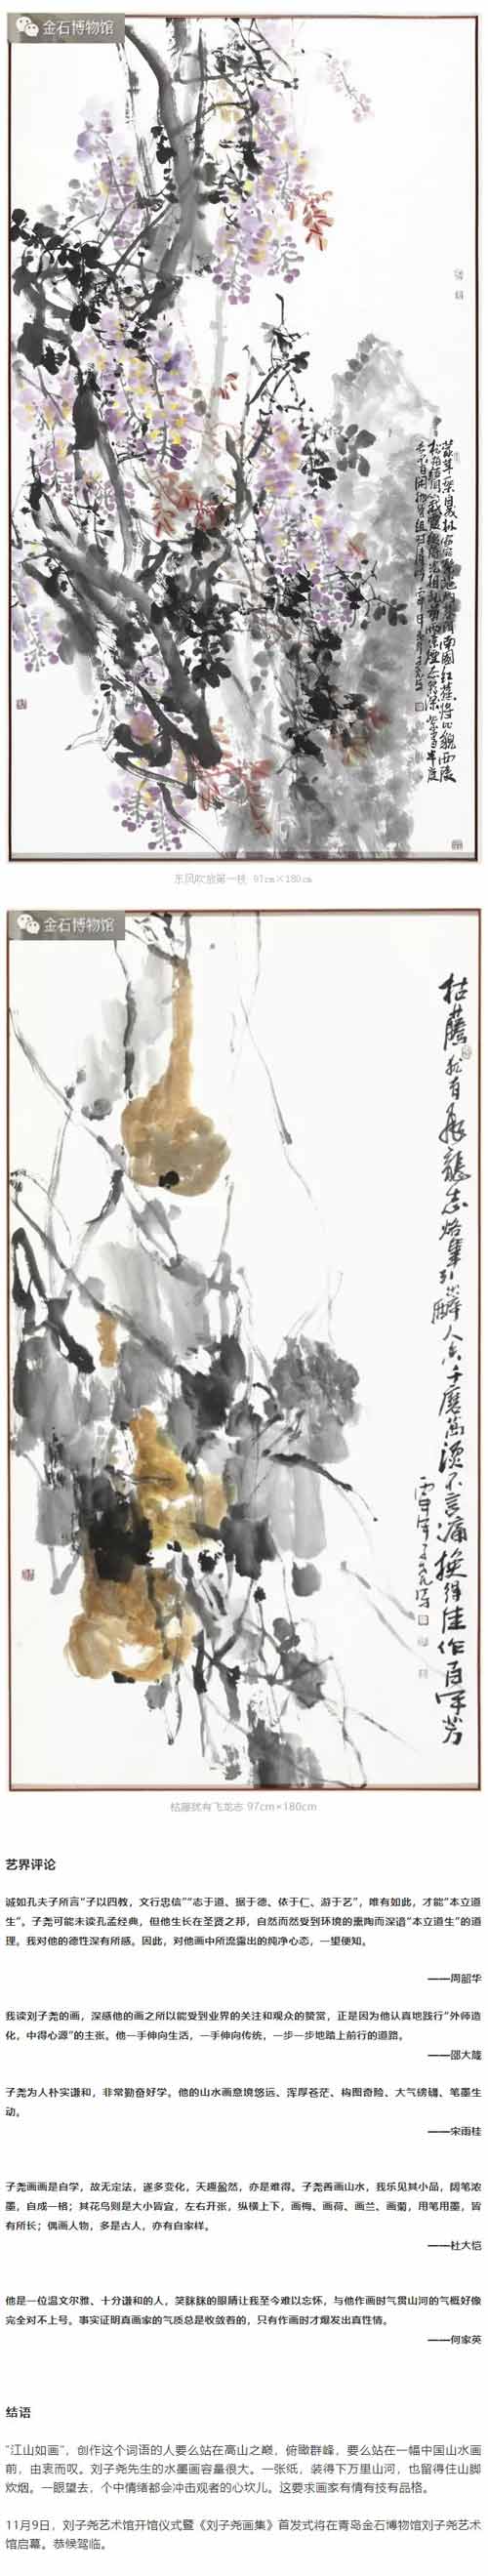 金石博物馆
东风吹放第一枝 97cm×180cm
金石博物馆
枯藤犹有飞龙志
千磨万
不言痛换得佳作百年芳
枯藤犹有飞龙志 97cm×180cm
艺界评论
诚如孔夫子所言“子以四教，文行忠信”“志于道、据于德、依于仁、游于艺”，唯有如此，才能“本立道
生”。子尧可能未读孔孟经典，但他生长在圣贤之邦，自然而然受到环境的熏陶而深谙“本立道生”的道
理。我对他的德性深有所感。因此，对他画中所流露出的纯净心态，一望便知。
——周韶华
我读刘子尧的画，深感他的画之所以能受到业界的关注和观众的赞赏，正是因为他认真地践行“外师造
化，中得心源”的主张。他一手伸向生活，一手伸向传统，一步一步地踏上前行的道路。
——邵大箴
子尧为人朴实谦和，非常勤奋好学。他的山水画意境悠远、浑厚苍茫、构图奇险、大气磅礴、笔墨生
动。
——宋雨桂
子尧画画是自学，故无定法，遂多变化，天趣盈然，亦是难得。子尧善画山水，我乐见其小品，阔笔浓
墨，自成一格；其花鸟则是大小皆宜，左右开张，纵横上下，画梅、画荷、画兰、画菊，用笔用墨，皆
有所长；偶画人物，多是古人，亦有自家样。
——杜大恺
他是一位温文尔雅、十分谦和的人，笑眯眯的眼睛让我至今难以忘怀，与他作画时气贯山河的气概好像
完全对不上号。事实证明真画家的气质总是收敛着的，只有作画时才爆发出真性情。
——何家英
结语
“江山如画”，创作这个词语的人要么站在高山之巅，俯瞰群峰，要么站在一幅中国山水画
前，由衷而叹。刘子尧先生的水墨画容量很大。一张纸，装得下万里山河，也留得住山脚
炊烟。一眼望去，个中情绪都会冲击观者的心坎儿。这要求画家有情有技有品格。
11月9日，刘子尧艺术馆开馆仪式暨《刘子尧画集》首发式将在青岛金石博物馆刘子尧艺术
馆启幕。恭候驾临。